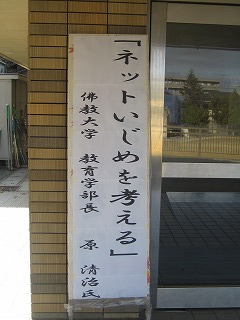 「ネットいじめを考える」
佛教大学 教育学部長 原 清治氏